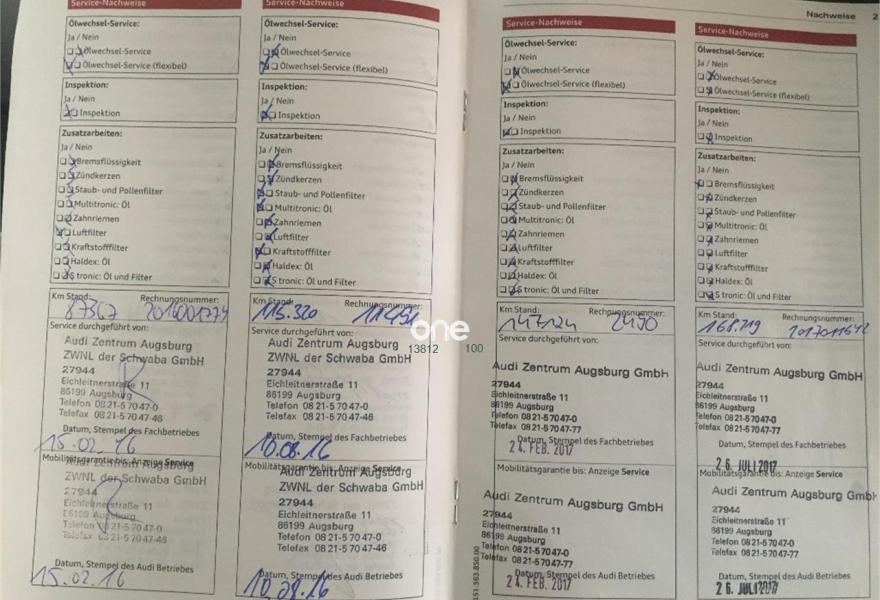 Service-Nachweise
Ölwechsel-Service:
Ja / Nein
Ölwechsel-Service
Ölwechsel-Service (flexibel)
Inspektion:
Ja / Nein
Inspektion
Zusatzarbeiten:
Ja / Nein
Bremsflüssigkeit
Zündkerzen
Staub- und Pollenfilter
Multitronic: Öl
Zahnriemen
Luftfilter
Kraftstofffilter
Haldex: Öl
S tronic: Öl und Filter
Km Stand: Rechnungsnummer:
87367
Service durchgeführt von:
Audi Zentrum Augsburg
ZWNL der Schwaba GmbH
27944
Eichleitnerstraße 11
86199 Augsburg
Telefon 08 21-5 70 47-0
Telefax 08 21-5 70 47-46
Datum, Stempel des Fachbetriebes
15.02.16
Mobilitätsgarantie bis: Anzeige Service
Audi Zentrum Augsburg
ZWNL der Schwaba GmbH
27944
Eichleitnerstraße 11
86199 Augsburg
Telefon 08 21-5 70 47-0
Telefax 08 21-5 70 47-46
Datum, Stempel des Audi Betriebes
15.02.16
Service-Nachweise
Ölwechsel-Service:
Ja / Nein
Ölwechsel-Service
Ölwechsel-Service (flexibel)
Inspektion:
Ja / Nein
Inspektion
Zusatzarbeiten:
Ja / Nein
Bremsflüssigkeit
Zündkerzen
Staub- und Pollenfilter
Multitronic: Öl
Zahnriemen
Luftfilter
Kraftstofffilter
Haldex: Öl
S tronic: Öl und Filter
Km Stand: Rechnungsnummer:
115.320
Service durchgeführt von:
Audi Zentrum Augsburg
ZWNL der Schwaba GmbH
27944
Eichleitnerstraße 11
86199 Augsburg
Telefon 08 21-5 70 47-0
Telefax 08 21-5 70 47-46
Datum, Stempel des Fachbetriebes
10.08.16
Mobilitätsgarantie bis: Anzeige Service
Audi Zentrum Augsburg
ZWNL der Schwaba GmbH
27944
Eichleitnerstraße 11
86199 Augsburg
Telefon 08 21-5 70 47-0
Telefax 08 21-5 70 47-46
Datum, Stempel des Audi Betriebes
10.08.16
one
13812 100
Service-Nachweise
Ölwechsel-Service:
Ja / Nein
Ölwechsel-Service
Ölwechsel-Service (flexibel)
Inspektion:
Ja / Nein
Inspektion
Zusatzarbeiten:
Ja / Nein
Bremsflüssigkeit
Zündkerzen
Staub- und Pollenfilter
Multitronic: Öl
Zahnriemen
Luftfilter
Kraftstofffilter
Haldex: Öl
S tronic: Öl und Filter
Km Stand: Rechnungsnummer:
147124 2490
Service durchgeführt von:
Audi Zentrum Augsburg GmbH
27944
Eichleitnerstraße 11
86199 Augsburg
Telefon 08 21-5 70 47-0
Telefax 08 21-5 70 47-77
Datum, Stempel des Fachbetriebes
24. FEB. 2017
Mobilitätsgarantie bis: Anzeige Service
Audi Zentrum Augsburg GmbH
27944
Eichleitnerstraße 11
86199 Augsburg
Telefon 08 21-5 70 47-0
Telefax 08 21-5 70 47-77
Datum, Stempel des Audi Betriebes
24. FEB. 2017
Nachweise 2
Service-Nachweise
Ölwechsel-Service:
Ja / Nein
Ölwechsel-Service
Ölwechsel-Service (flexibel)
Inspektion:
Ja / Nein
Inspektion
Zusatzarbeiten:
Ja / Nein
Bremsflüssigkeit
Zündkerzen
Staub- und Pollenfilter
Multitronic: Öl
Zahnriemen
Luftfilter
Kraftstofffilter
Haldex: Öl
S tronic: Öl und Filter
Km Stand: Rechnungsnummer:
168.719
Service durchgeführt von:
Audi Zentrum Augsburg GmbH
27944
Eichleitnerstraße 11
86199 Augsburg
Telefon 08 21-5 70 47-0
Telefax 08 21-5 70 47-77
Datum, Stempel des Fachbetriebes
26. JULI 2017
Mobilitätsgarantie bis: Anzeige Service
Audi Zentrum Augsburg GmbH
27944
Eichleitnerstraße 11
86199 Augsburg
Telefon 08 21-5 70 47-0
Telefax 08 21-5 70 47-77
Datum, Stempel des Audi Betriebes
26. JULI 2017